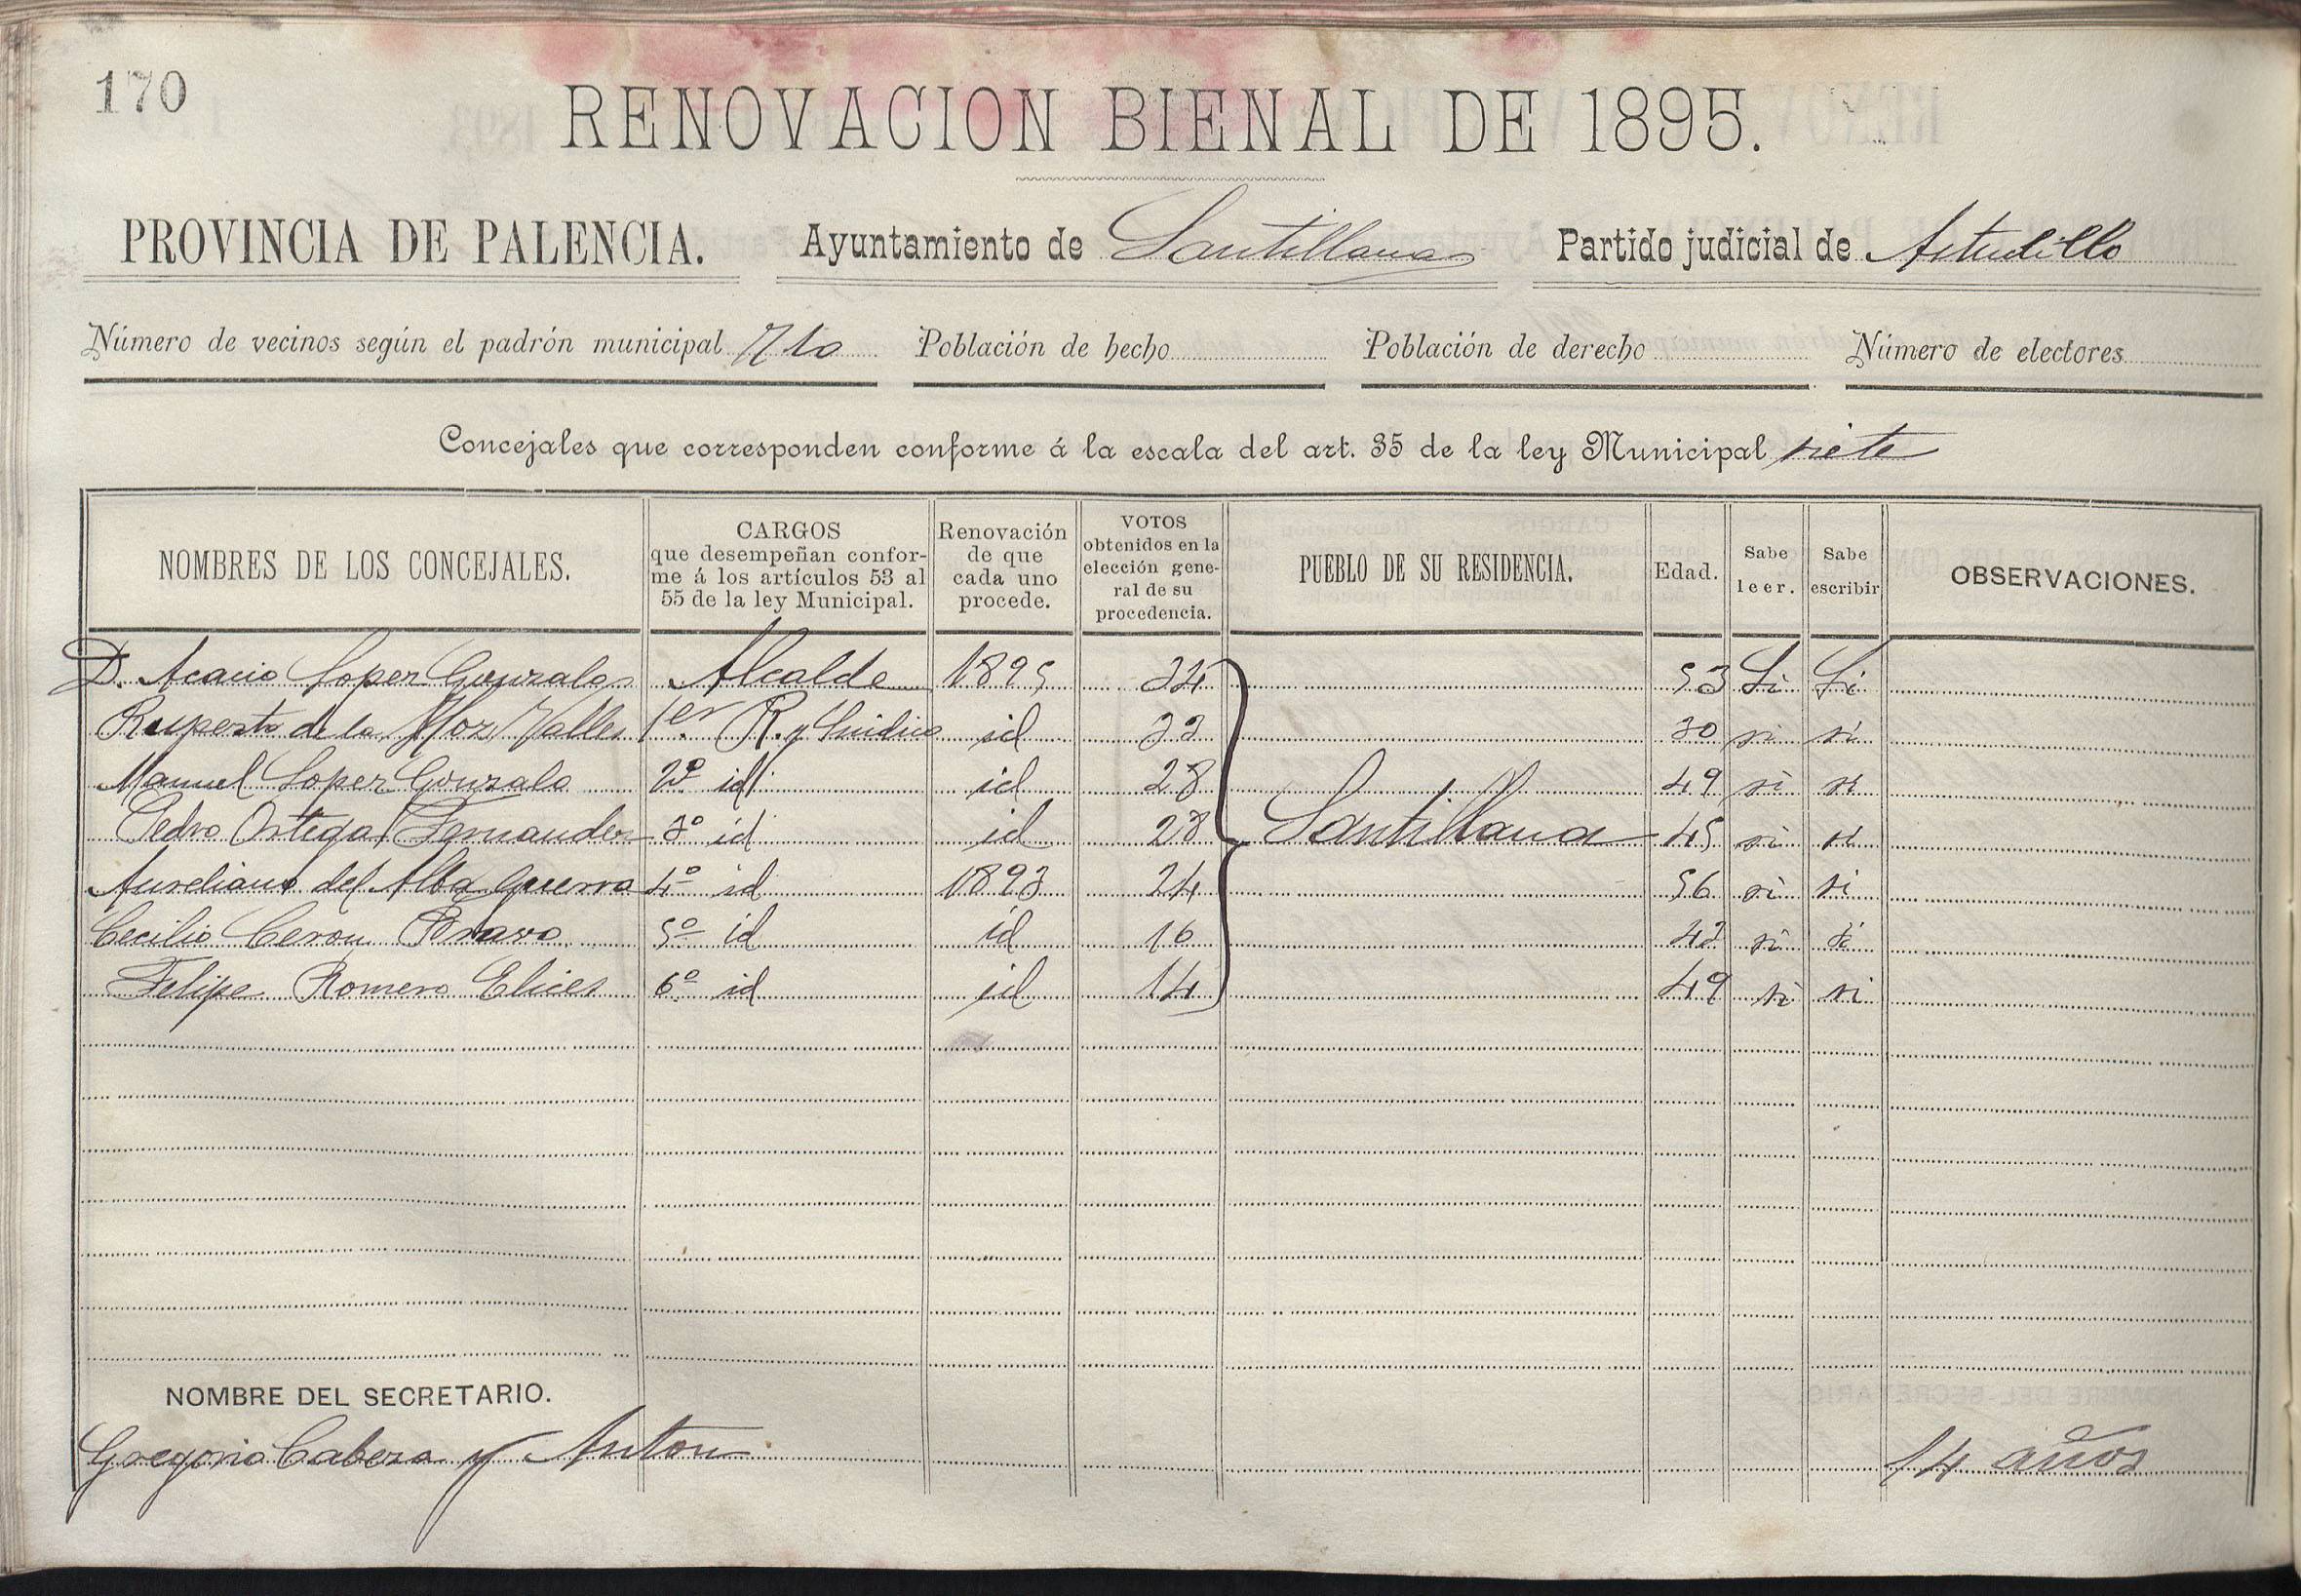 170
RENOVACION BIENAL DE 1895.
PROVINCIA DE PALENCIA. Ayuntamiento de Santillana Partido judicial de Astudillo
Número de vecinos según el padrón municipal Población de hecho Población de derecho Número de electores
Concejales que corresponden conforme á la escala del art. 35 de la ley Municipal siete
NOMBRES DE LOS CONCEJALES. CARGOS que desempeñan conforme á los artículos 53 al 55 de la ley Municipal. Renovación de que cada uno procede. VOTOS obtenidos en la elección general de su procedencia. PUEBLO DE SU RESIDENCIA. Edad. Sabe leer. Sabe escribir OBSERVACIONES.
D. Acacio Lopez Gonzalo Alcalde 1895 34 53 Si Si
Ruperto de la Hoz Valles 1er. R. y Sindico id 33 30 si si
Manuel Lopez Gonzalo 2º id id 28 49 si si
Pedro Ortega Fernandez 3º id id 28 Santillana 45 si si
Aureliano del Alba Guerra 4º id 1893 24 56 si si
Cecilio Ceron Bravo 5º id id 16 43 si si
Felipe Romero Elices 6º id id 14 49 si si
NOMBRE DEL SECRETARIO.
Gregorio Cabeza y Anton 14 años